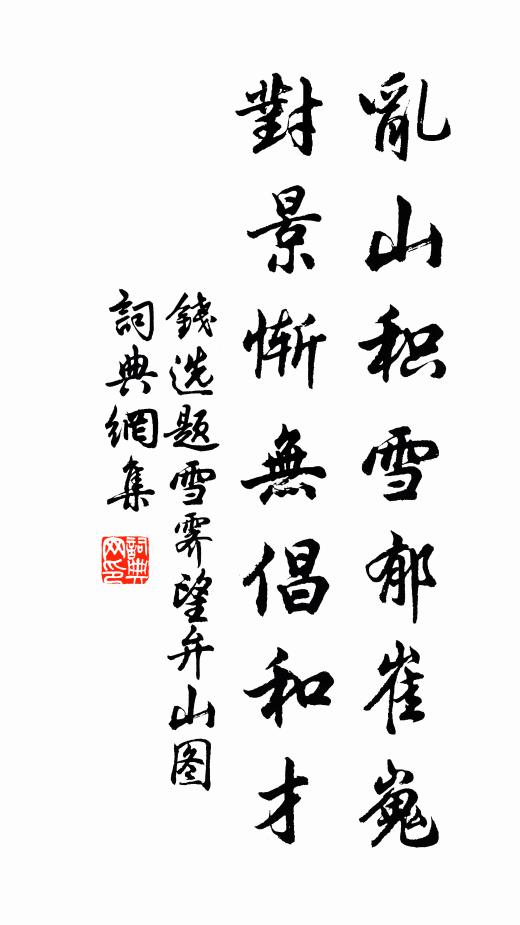 亂山积雪郁崔嵬
對景惭無倡和才
錢选题雪霽望弁山图
詞典網集
詞典网印